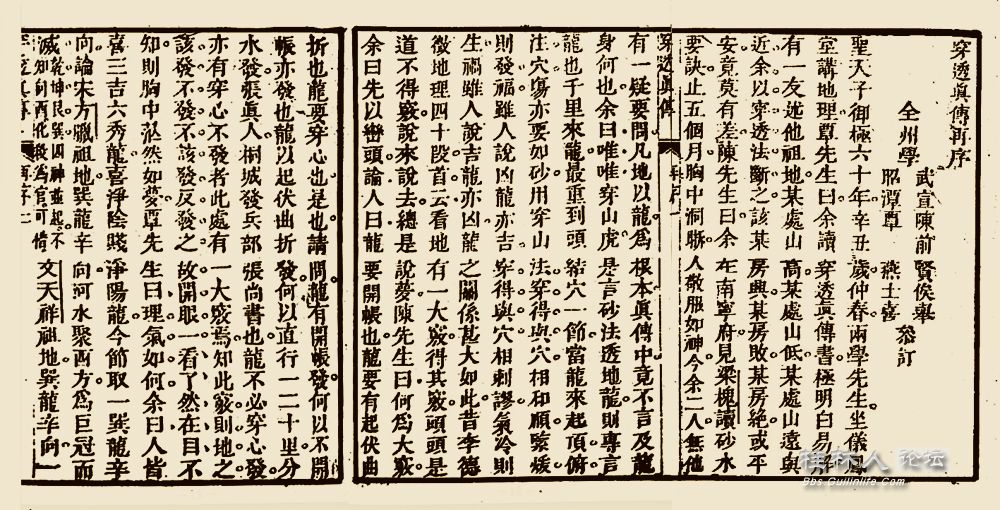 穿透真傳再序
全州學 武宣陳前賢俟畢 昭潭尊燕士喜 叅訂
聖天子御極六十年辛丑歲仲春兩學先生坐儀鳳
堂講地理尊先生曰余讀穿透真傳書極明白易解
有一友述他祖地某處山高某處山低某處山遠與
近余以穿透法斷之該某房興某房敗某房絕或平
安竟莫有差陳先生曰余在南寧府見梁槐讀砂水
要訣止五個月胸中洞豁人敬服如神今余二人無他
穿透真傳
有一疑要問凡地以龍為根本真傳中竟不言及龍
身何也余曰唯唯穿山虎是言砂法透地龍則專言
龍也千里來龍最重到頭結穴一節當龍來起頂俯
注穴傷亦要如砂用穿山法穿得與穴相和順駿煖
則發福雖人說凶龍亦吉穿得與穴相刺謬氣冷則
生禍雖人說吉龍亦凶龍之關係甚大如此昔李德
徵地理四十段首云看地有一大竅得其竅頭頭是
道不得竅說來說去總是說夢陳先生曰何為大竅
余曰先以巒頭諭人曰龍要開帳也龍要有起伏曲
折也龍要穿心也是也請問龍有開帳發何以不開
帳亦發也龍以起伏曲折發何以直行一二十里分
水發張真人桐城發兵部張尚書也龍不必穿心發
亦有穿心不發者此處有一大竅焉知此竅則地之
該發不發不該發反發之故開眼一看了然在目不
知則胸中茫然如夢尊先生曰理氣如何余曰人皆
喜三吉六秀龍喜淨陰賤淨陽龍今節取一巽龍辛
向論宋方臘祖地巽龍辛向河水聚酉方為巨冠而
滅知乾坤艮巽四神並起不知向西化殺為官可惜文天祥祖地巽龍辛向一
桂林人 论坛
Bbs.Guilinlife.Com